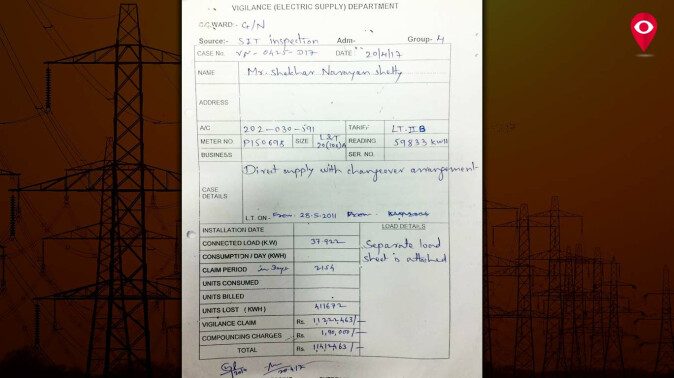 VIGILANCE (ELECTRIC SUPPLY) DEPARTMENT
C.C.WARD:- G/N
Source:- SIT inspection Adm- Group- 4
CASE No VN-0425-D17 DATE 20/4/17
NAME Mr. Shekhar Narayan Shetty
ADDRESS
A/C 202-030-591 TARIFF LT-II B
METER NO P150698 SIZE L&T 20(100)A READING 59833 KWH
BUSINESS SER. NO.
CASE DETAILS
Direct supply with changeover arrangement
I.T. ON.- From 28-5-2011
INSTALLATION DATE LOAD DETAILS
CONNECTED LOAD (K.W) 37.922 Separate load sheet is attached
CONSUMPTION / DAY (KWH)
CLAIM PERIOD In Days 2154
UNITS CONSUMED
UNITS BILLED
UNITS LOST ( KWH ) 411672
VIGILANCE CLAIM Rs. 1,13,22,463/-
COMPOUNDING CHARGES Rs. 1,90,000/-
TOTAL Rs.